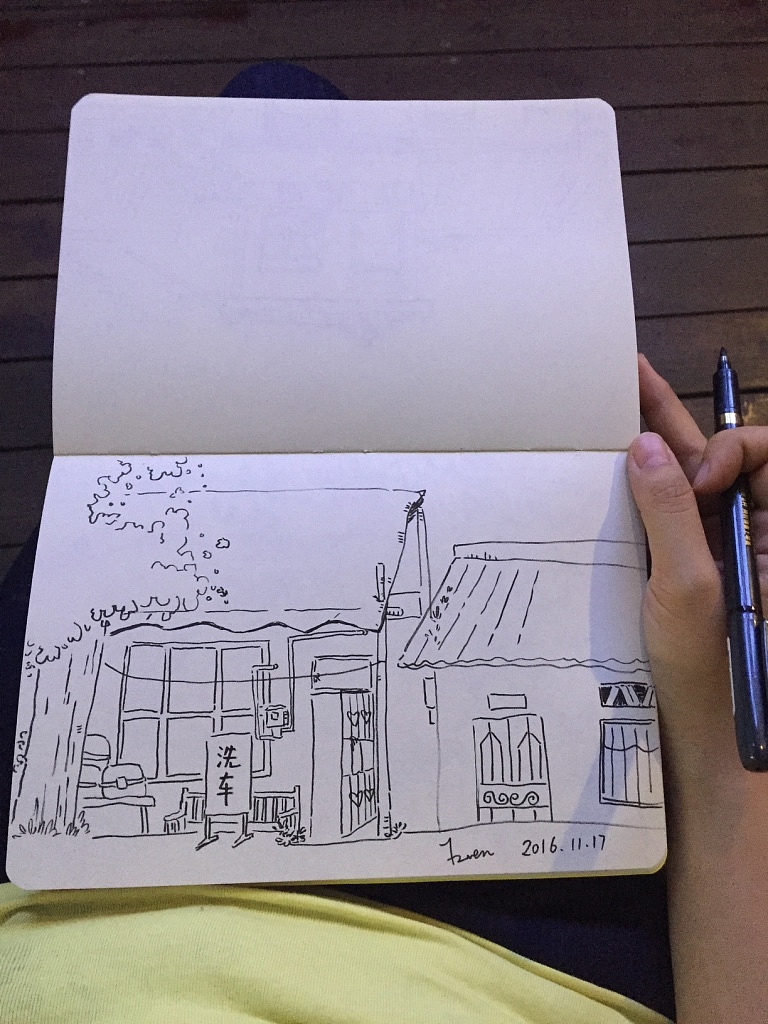 洗
车
2016.11.17